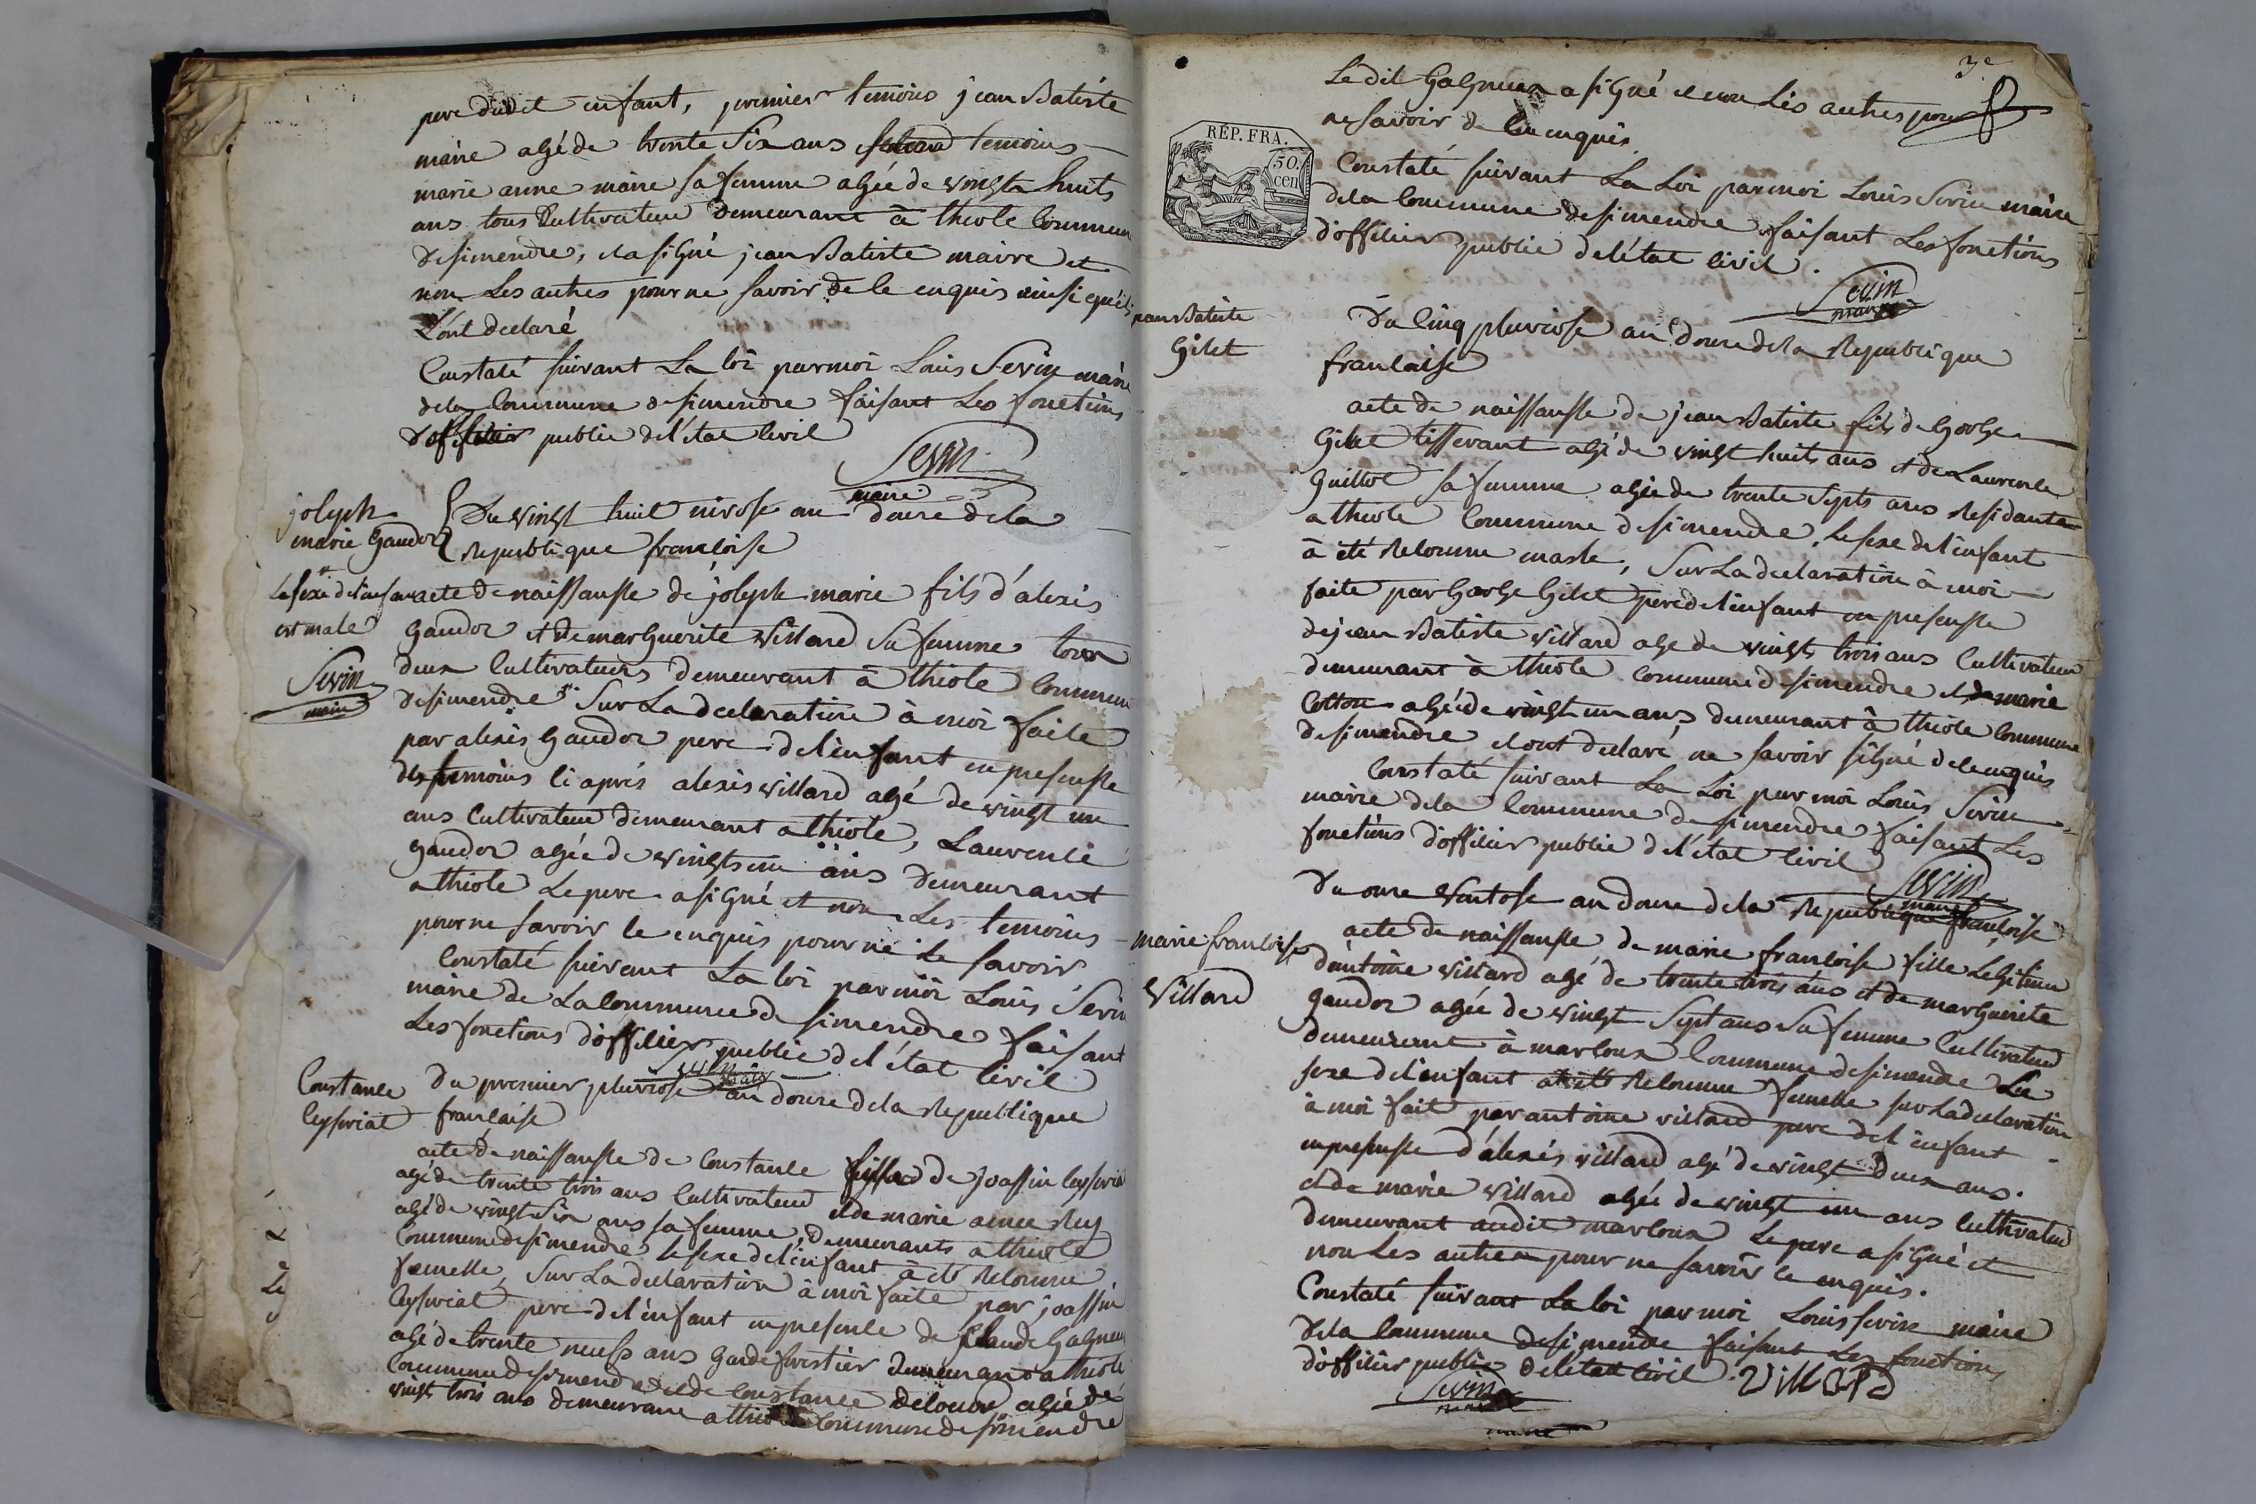 pere dudit enfant, premier temoins jean Batiste
maire agé de trente Six ans second temoins
marie anne maire sa femme agée de vingts huits
ans tous Cultivateur demeurant à thiole Commun
desimendre, et a signé jean Batiste maire et
non Les autres pour ne savoir de le enquis ainsi qu'il
L'ont declaré
Constaté suivant La loi parmoi Louis Sevin maire
dela Commune desimendre faisant Les fonctions
d'officier public del'état Civil
Sevin
maire
joseph
marie Gaudoz
Du vingt huit nivose an douze dela
Republique francoise
Le sexe del'enfant
est male
Sevin
maire
acte denaissansse de joseph marie fils d'alexis
Gaudoz et de marGuerite Villard Sa femme tous
deux Cultivateurs demeurant à thiole Commun
desimendre Sur La declaration à moi faite
par alexis Gaudoz pere del'enfant en presensse
des temoins Ci aprés alexis villard agé de vingt un
ans Cultivateur demeurant a thiole, Laurence
Gaudoz agée de vingts un ans demeurant
a thiole Le pere a siGné et non Les temoins
pour ne savoir le enquis pour ne le savoir
Constaté suivant La loi par moi Louis Sevin
maire de La Commune de simendre faisant
Les fonctions d'officier public del'état Civil
Sevin maire
Constance
Ceyseriat
Du premier pluviose an douze dela Republique
francaise
acte de naissansse de Constance fille de Joassin Ceyseriat
agé de trente trois ans Cultivateur et de marie aimee Rey
agé de vingt Six ans sa femme, demeurants a thiole
Commune desimendre le sexe del'enfant à eté Reconnue
femelle, Sur La declaration à moi faite par joassin
Ceyseriat pere del'enfant en presence de Claude Gagneux
agé de trente neufs ans Garde forestier demeurant a thiole
Commune desimendre et de Constance agée de
vingt trois ans demeurant a thiole Commune de simendre
3e
Le dit GaGneux a siGné et non Les autres pour
ne savoir de le enquis.
RÉP. FRA.
50.
cen
Constaté suivant La Loi par moi Louis Sevin maire
dela Commune desimendre faisant Les fonctions
d'officier public del'état Civil.
Sevin
maire
jean Batiste
Gilet
Du Cinq pluviose an douze dela Republique
francaise
acte de naissansse de jean Batiste fils de GorGe
Gilet tisserant agé de vingt huits ans et de Laurence
Guillot sa femme agée de trente Septs ans Residante
a thiole Commune desimendre, le sexe del'enfant
à été Reconnu masle, Sur La declaration à moi
faite par GorGe Gilet pere del'enfant en presensse
de jean Batiste villard age de vingts trois ans Cultivateur
demeurant à thiole Commune desimendre et de marie
Cotton agée de vingt un ans demeurant à thiole Commune
desimendre et ont declaré ne savoir siGné de le enquis
Constaté suivant La Loi par moi Louis Sevin
maire dela Commune desimendre faisant Les
fonctions d'officier public del'état Civil
Sevin
maire
marie francoise
Villard
Du onze ventose an douze dela Republique francoise
acte de naissansse de marie francoise fille LeGitime
d'antoine villard agé de trente trois ans et de marGuerite
Gaudoz agée de vingt Sept ans Sa femme Cultivateur
demeurant à marloux Commune desimendre Le
sexe del'enfant a été Reconnue femelle sur La declaration
à moi fait par antoine villard pere del'enfant
en presensse d'alexis villard agé de vingt deux ans.
et de marie villard agée de vingt un ans Cultivateur
demeurant audit marloux Le pere a siGné et
non Les autres pour ne savoir le enquis.
Constaté suivant La loi par moi Louis Sevin maire
dela Commune desimendre faisant Les fonctions
d'officier public del'état Civil. villard
Sevin
maire
maire